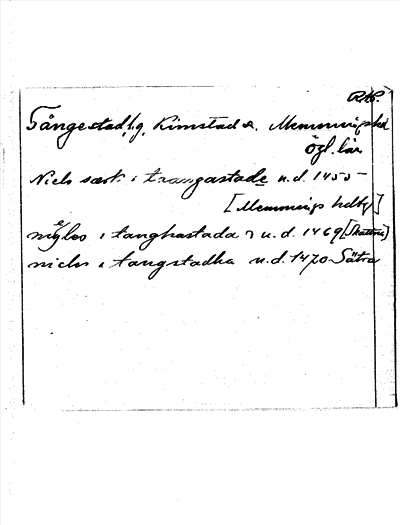 RAP.
Tångestad, bg. Kimstad s. Memmings hd
Ögl. län
Niels særk i trangastade u.d. 1455
[Memmings hdtg]
niglos i tanghastada u.d. 1469
niclis i tangstadha u.d. 1470 Sätra